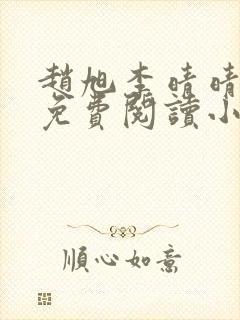 趙旭李晴晴
免費閱讀小
順心如意